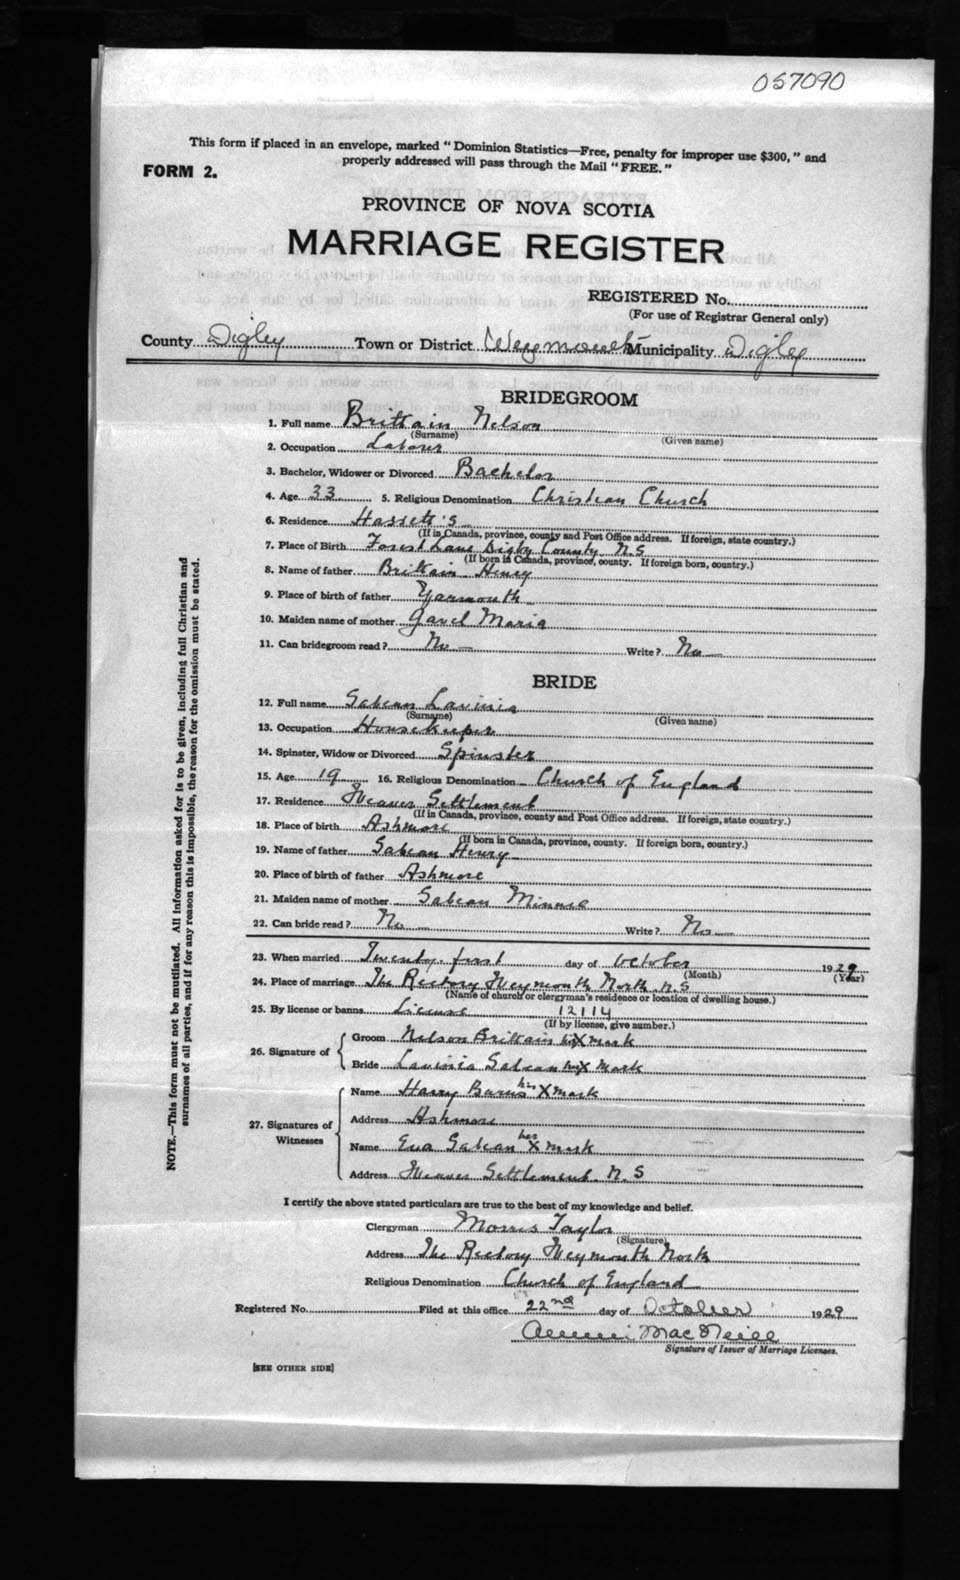 057090
This form if placed in an envelope, marked "Dominion Statistics—Free, penalty for improper use $300," and
properly addressed will pass through the Mail "FREE."
FORM 2.
PROVINCE OF NOVA SCOTIA
MARRIAGE REGISTER
REGISTERED No.
(For use of Registrar General only)
County Digby Town or District Weymouth Municipality Digby
BRIDEGROOM
1. Full name Brittain Nelson
(Surname) (Given name)
2. Occupation Laborer
3. Bachelor, Widower or Divorced Bachelor
4. Age 33 5. Religious Denomination Christian Church
6. Residence Hassett's
(If in Canada, province, county and Post Office address. If foreign, state country.)
7. Place of Birth Forest Lane Digby County N.S
(If born in Canada, province, county. If foreign born, country.)
8. Name of father Brittain Henry
9. Place of birth of father Yarmouth
10. Maiden name of mother Gavel Maria
11. Can bridegroom read? No — Write? No —
BRIDE
12. Full name Sabean Lavinia
(Surname) (Given name)
13. Occupation Housekeeper
14. Spinster, Widow or Divorced Spinster
15. Age 19 16. Religious Denomination Church of England
17. Residence Weaver Settlement
(If in Canada, province, county and Post Office address. If foreign, state country.)
18. Place of birth Ashmore
(If born in Canada, province, county. If foreign born, country.)
19. Name of father Sabean Henry
20. Place of birth of father Ashmore
21. Maiden name of mother Sabean Minnie
22. Can bride read? No — Write? No —
23. When married Twenty first day of October 1929
(Month) (Year)
24. Place of marriage The Rectory Weymouth North N.S
(Name of church or clergyman's residence or location of dwelling house.)
25. By license or banns License 12114
(If by license, give number.)
26. Signature of
Groom Nelson Brittain his X mark
Bride Lavinia Sabean her X Mark
27. Signatures of Witnesses
Name Harry his X mark
Address Ashmore
Name Eva Sabean her X mark
Address Weaver Settlement. N.S
I certify the above stated particulars are true to the best of my knowledge and belief.
Clergyman Morris Taylor
(Signature)
Address The Rectory Weymouth North
Religious Denomination Church of England
Registered No. Filed at this office 22nd day of October 1929
MacNeill
Signature of Issuer of Marriage Licenses.
[SEE OTHER SIDE]
NOTE.—This form must not be mutilated. All information asked for is to be given, including full Christian and
surnames of all parties, and if for any reason this is impossible, the reason for the omission must be stated.